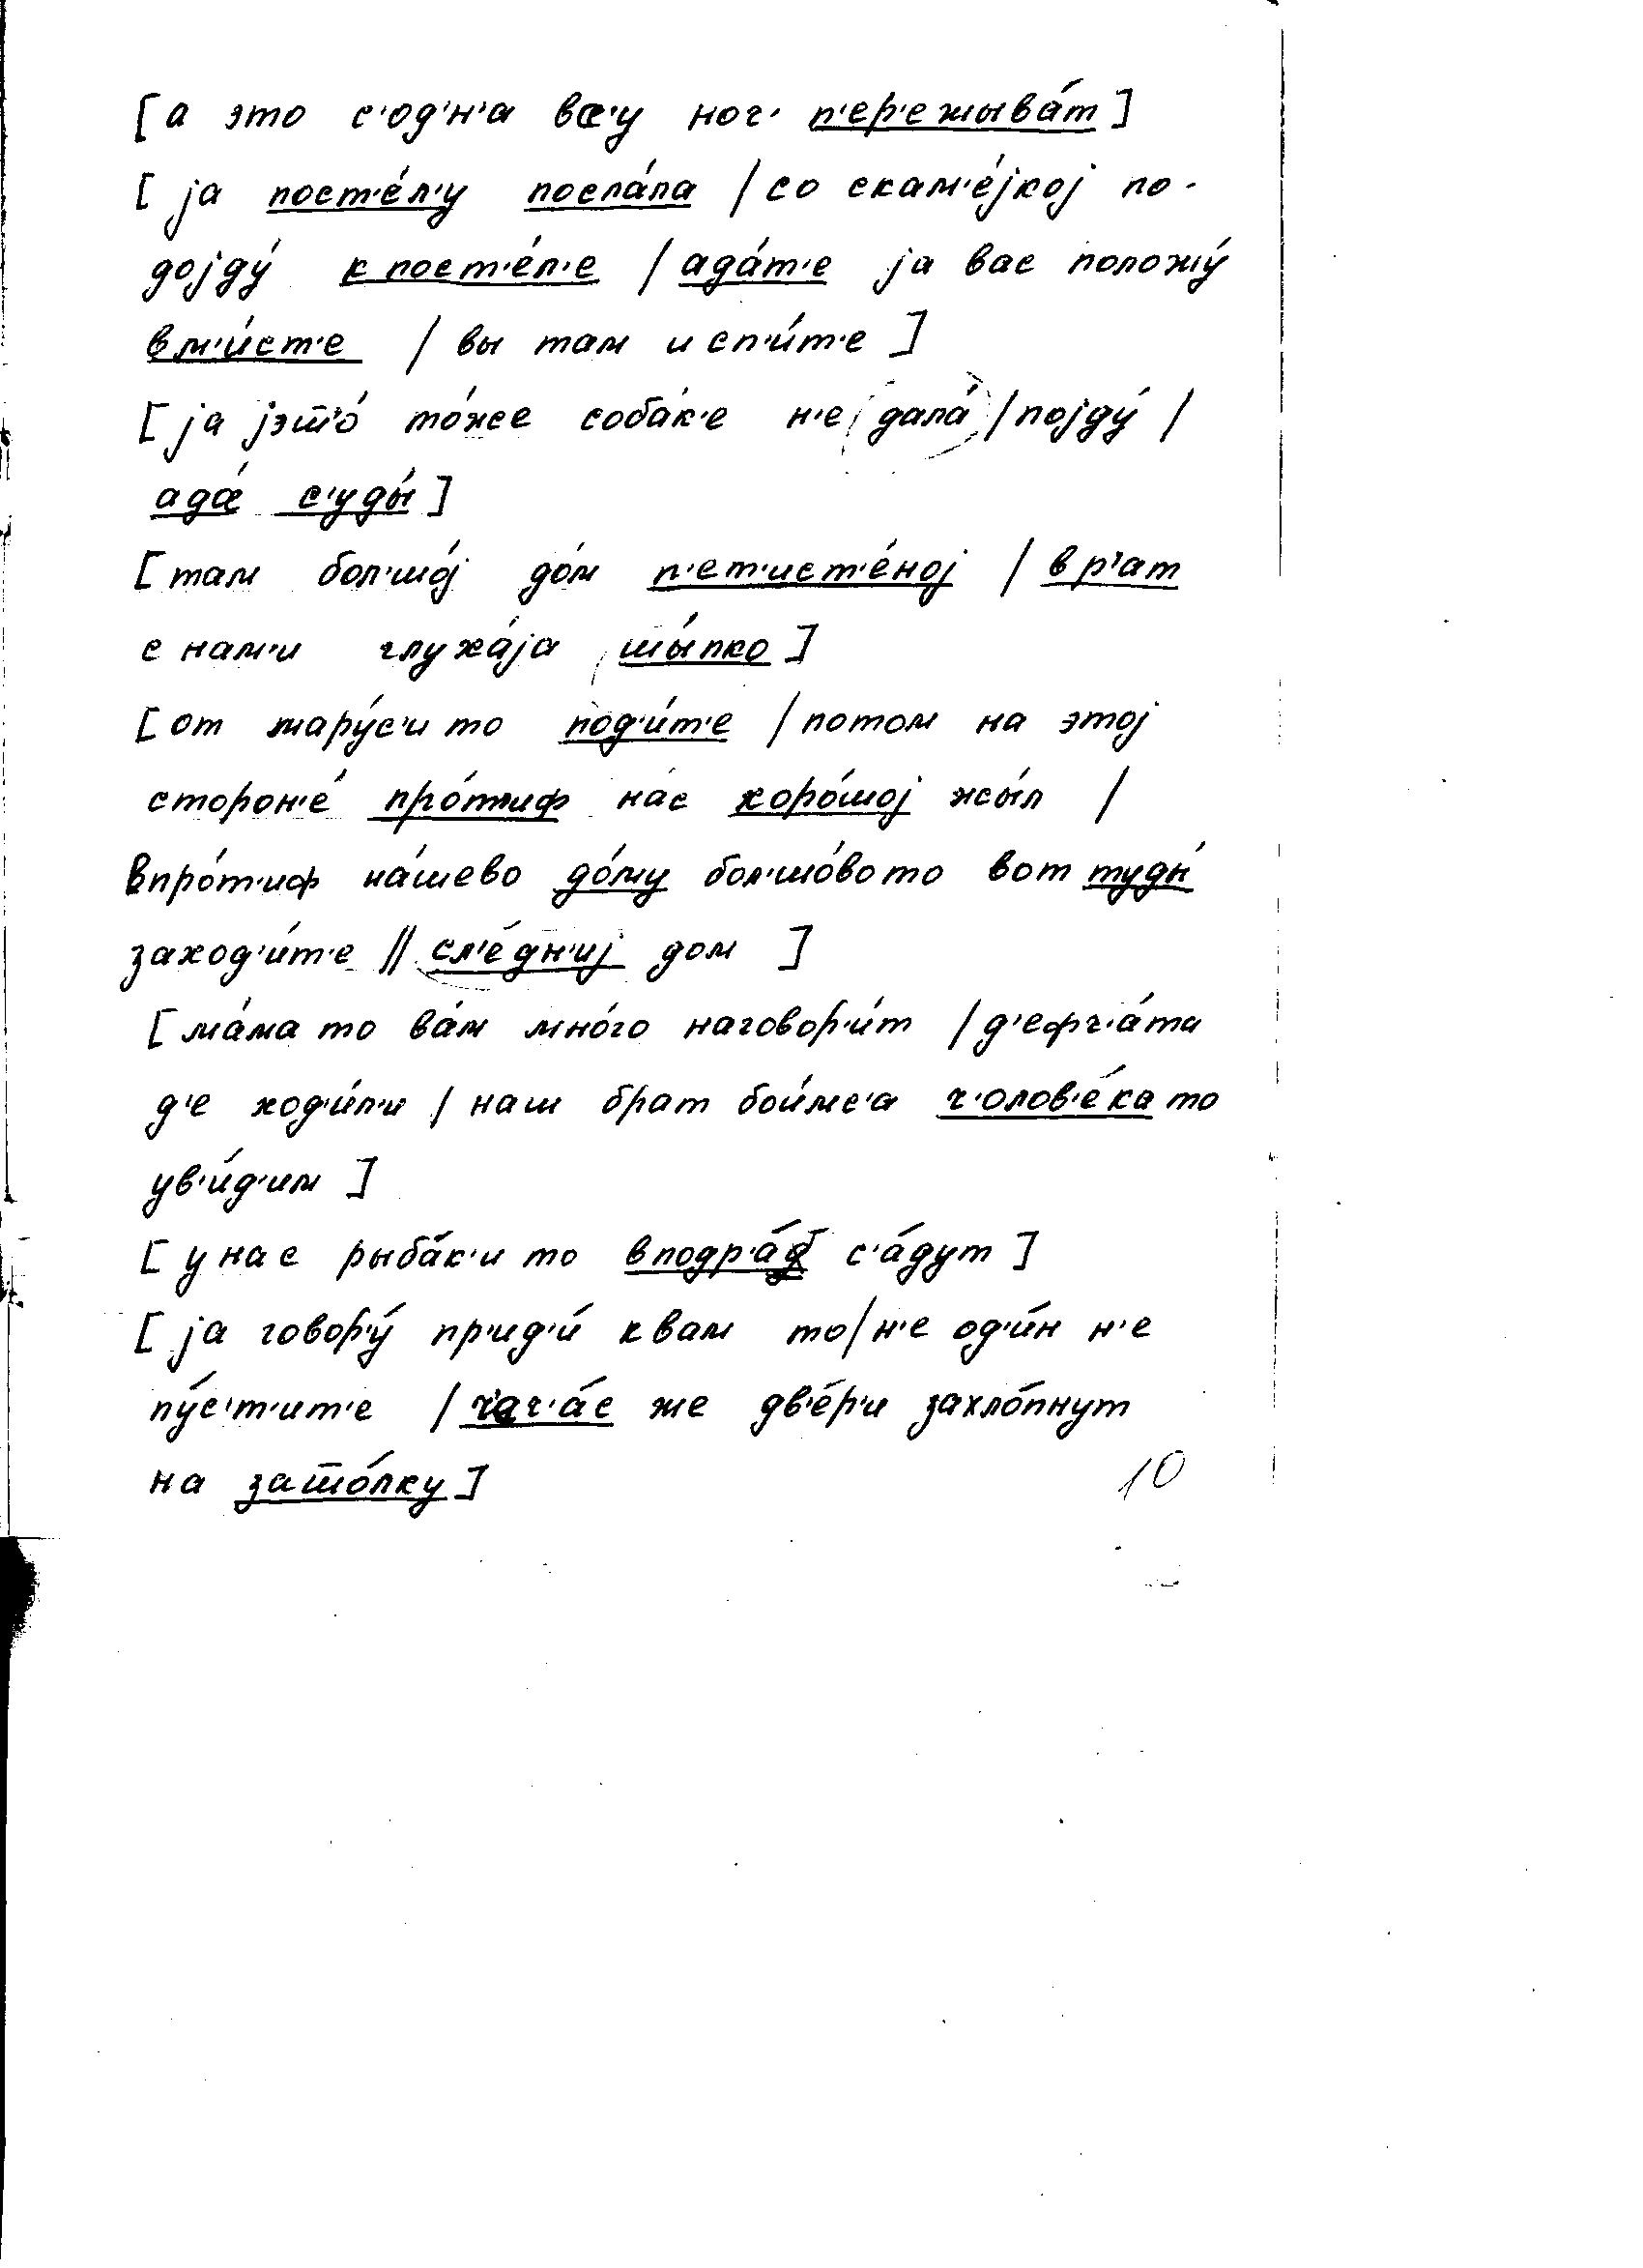 [а это с'од'н'а вс'у ноч' п'ер'ежыва́т]
[ја пост'е́л'у посла́ла / со скам'е́јкој по-
дојду́ к пост'е́л'е / ада́т'е ја вас положу́
вм'и́ст'е / вы там и сп'и́т'е]
[ја јэто́ то́же соба́к'е н'е дала́ / појду́ /
ада́ с'уды́]
[там бол'шо́ј до́м п'ет'ист'е́ној / вр'ат
с нам'и глуха́ја шы́пко]
[от мару́с'и то под'и́т'е / потом на этој
сторон'е́ про́т'иф на́с хоро́шој жы́л /
впро́т'иф на́шево до́му бол'шо́вото вот туды́
заход'и́т'е // сл'е́дн'иј дом]
[ма́ма то ва́м мно́го наговор'и́т / д'ефч'а́та
д'е ход'и́л'и / наш брат бои́мс'а ч'олов'е́ка то
ув'и́д'им]
[у нас рыба́к'и то вподр'а́д с'а́дут]
[ја говор'у́ пр'ид'и́ к вам то / н'е од'и́н н'е
пу́с'т'ит'е / ч'ач'а́с же дв'е́р'и захло́пнут
на зато́лку]
10